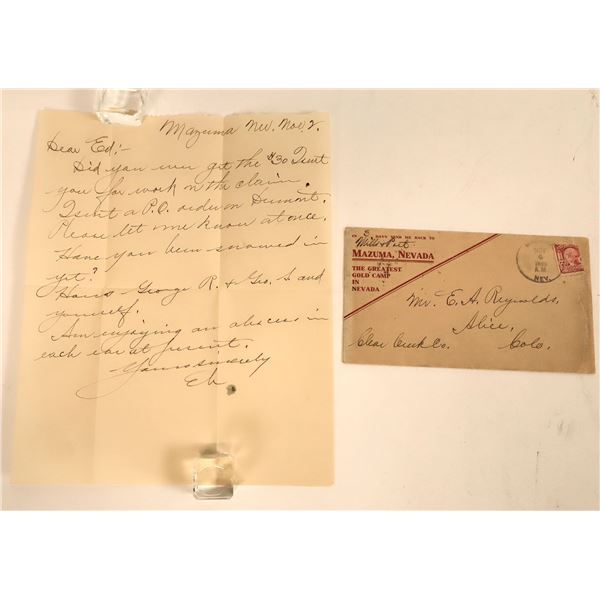 Mazuma Nev. Nov. 2.
Dear Ed:-
Did you ever get the $30 I sent
you for work on the claim.
I sent a P.O. order on Dumont.
Please let me know at once.
Have you been snowed in
yet?
How is George R. & Geo. S. and
yourself.
Am enjoying an abscess in
each ear at present.
Yours sincerely
Eb
IN 3 DAYS SEND ME BACK TO
Mills &
MAZUMA, NEVADA
THE GREATEST
GOLD CAMP
IN
NEVADA
NOV
A.M.
NEV.
Mr. E. A. Reynolds,
Alice,
Clear Creek Co. Colo.